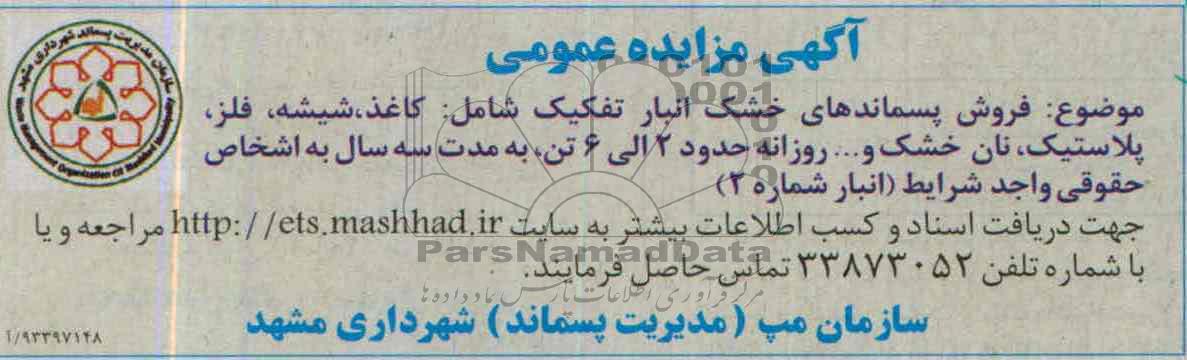 آگهی مزایده عمومی
موضوع: فروش پسماندهای خشک انبار تفکیک شامل: کاغذ،شیشه، فلز،
پلاستیک، نان خشک و... روزانه حدود ۲ الی ۶ تن، به مدت سه سال به اشخاص
حقوقی واجد شرایط (انبار شماره ۲)
جهت دریافت اسناد و کسب اطلاعات بیشتر به سایت http://ets.mashhad.ir مراجعه و یا
با شماره تلفن ۳۳۸۷۳۰۵۲ تماس حاصل فرمایند.
سازمان مپ (مدیریت پسماند) شهرداری مشهد
۹۳۳۹۷۱۴۸/آ
سازمان مدیریت پسماند شهرداری مشهد
Waste Management Organization Of Mashhad Municipality
ParsNamadData
مرکز فرآوری اطلاعات پارس نماد داده ها